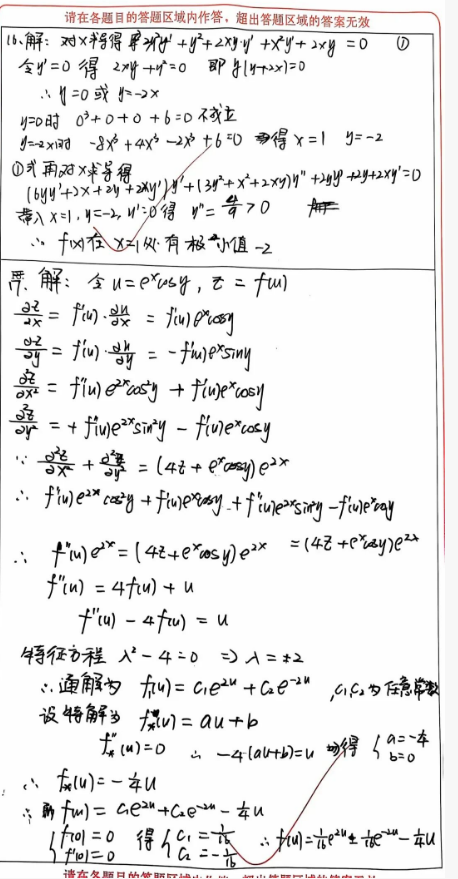 请在各题目的答题区域内作答，超出答题区域的答案无效
16.解：对x求导得 3y²y' + y² + 2xy·y' + x²y' + 2xy = 0 ①
令y'=0 得 2xy+y²=0 即 y(y+2x)=0
∴ y=0 或 y=-2x
y=0时 0³+0+0+6=0 不成立
y=-2x时 -8x³+4x³-2x³+6=0 得 x=1 y=-2
①式再对x求导得
(6yy'+2x+2y+2xy')y'+(3y²+x²+2xy)y''+2yy'+2y+2xy'=0
带入 x=1, y=-2, y'=0 得 y''=4/9>0
∴ f(x)在 x=1处有极小值 -2
解：令 u=eˣcosy, z=f(u)
∂z/∂x = f'(u)·∂u/∂x = f'(u)eˣcosy
∂z/∂y = f'(u)·∂u/∂y = -f'(u)eˣsiny
∂²z/∂x² = f''(u)e²ˣcos²y + f'(u)eˣcosy
∂²z/∂y² = +f''(u)e²ˣsin²y - f'(u)eˣcosy
∵ ∂²z/∂x² + ∂²z/∂y² = (4z+eˣcosy)e²ˣ
∴ f''(u)e²ˣcos²y + f'(u)eˣcosy + f''(u)e²ˣsin²y - f'(u)eˣcosy
=(4z+eˣcosy)e²ˣ
∴ f''(u)e²ˣ=(4z+eˣcosy)e²ˣ
f''(u) = 4f(u) + u
f''(u) - 4f(u) = u
特征方程 λ²-4=0 ⇒ λ=±2
∴通解为 f(u) = c₁e²ᵘ+c₂e⁻²ᵘ ,c₁c₂为任意常数
设特解为 f*(u) = au+b
f*''(u)=0 ∴ -4(au+b)=u 得 { a=-1/4 b=0
∴ f*(u) = -1/4u
∴ 即 f(u) = c₁e²ᵘ+c₂e⁻²ᵘ-1/4u
{ f(0)=0 f'(0)=0 得 { c₁=1/16 c₂=-1/16 ∴ f(u)=1/16e²ᵘ-1/16e⁻²ᵘ-1/4u